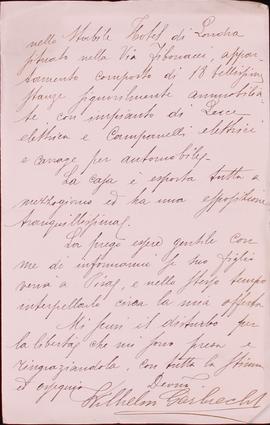 nello Stabile Hotel di Londra
situato nella Via Fibonacci, appar-
tamento composto di 18 bellissime
stanze signorilmente ammobilia-
te con impianto di Luce
elettrica e Campanelli elettrici
e garage per automobiles.
La casa è esposta tutta a
mezzogiorno ed ha una esposizione
tranquillissima.
La prego essere gentile con
me di informarmi se suo figlio
verrà a Pisa, e nello stesso tempo
interpellarlo circa la mia offerta
Mi scusi il disturbo per
la libertà che mi sono presa e
ringraziandola, con tutta la stima
ed ossequio
Wilhelm Gerbrecht